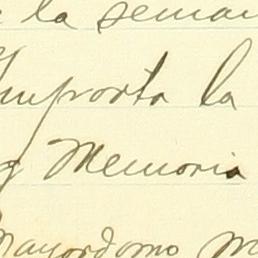 la seman
Importa la
Memoria
Mayordomo